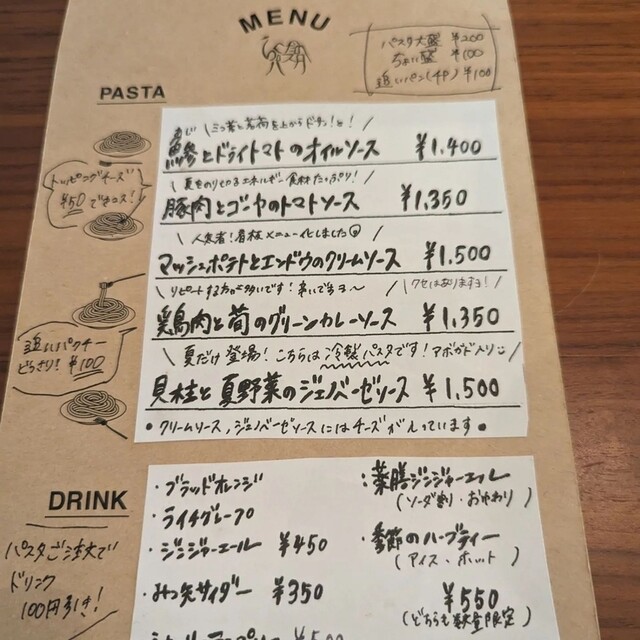 MENU
パスタ大盛 ¥200
ちょい盛 ¥100
追いパン(4P) ¥100
PASTA
あじ \三つ葉と茗荷を上からドサッ!と!/
鯵とドライトマトのオイルソース ¥1,400
\夏をのりきるエネルギー食材たっぷり!/
豚肉とゴーヤのトマトソース ¥1,350
\人気者!看板メニュー化しました/
マッシュポテトとエンドウのクリームソース ¥1,500
\リピートする方が多いです!辛いですヨ〜 \クセはありますヨ!/
鶏肉と筍のグリーンカレーソース ¥1,350
\夏だけ登場!こちらは冷製パスタです!アボガド入り
貝柱と夏野菜のジェノベーゼソース ¥1,500
•クリームソース、ジェノベーゼソースにはチーズが入っています•
トッピングチーズ
¥50でプラス!
追いパクチー
どっさり! ¥100
DRINK
パスタご注文で
ドリンク
100円引き!
・ブラッドオレンジ
・ライチグレープ
・ジンジャーエール ¥450
・みつ矢サイダー ¥350
¥500
・薬膳ジンジャーエール
(ソーダ割り・お湯わり)
・季節のハーブティー
(アイス・ホット)
¥550
(どちらも数量限定)